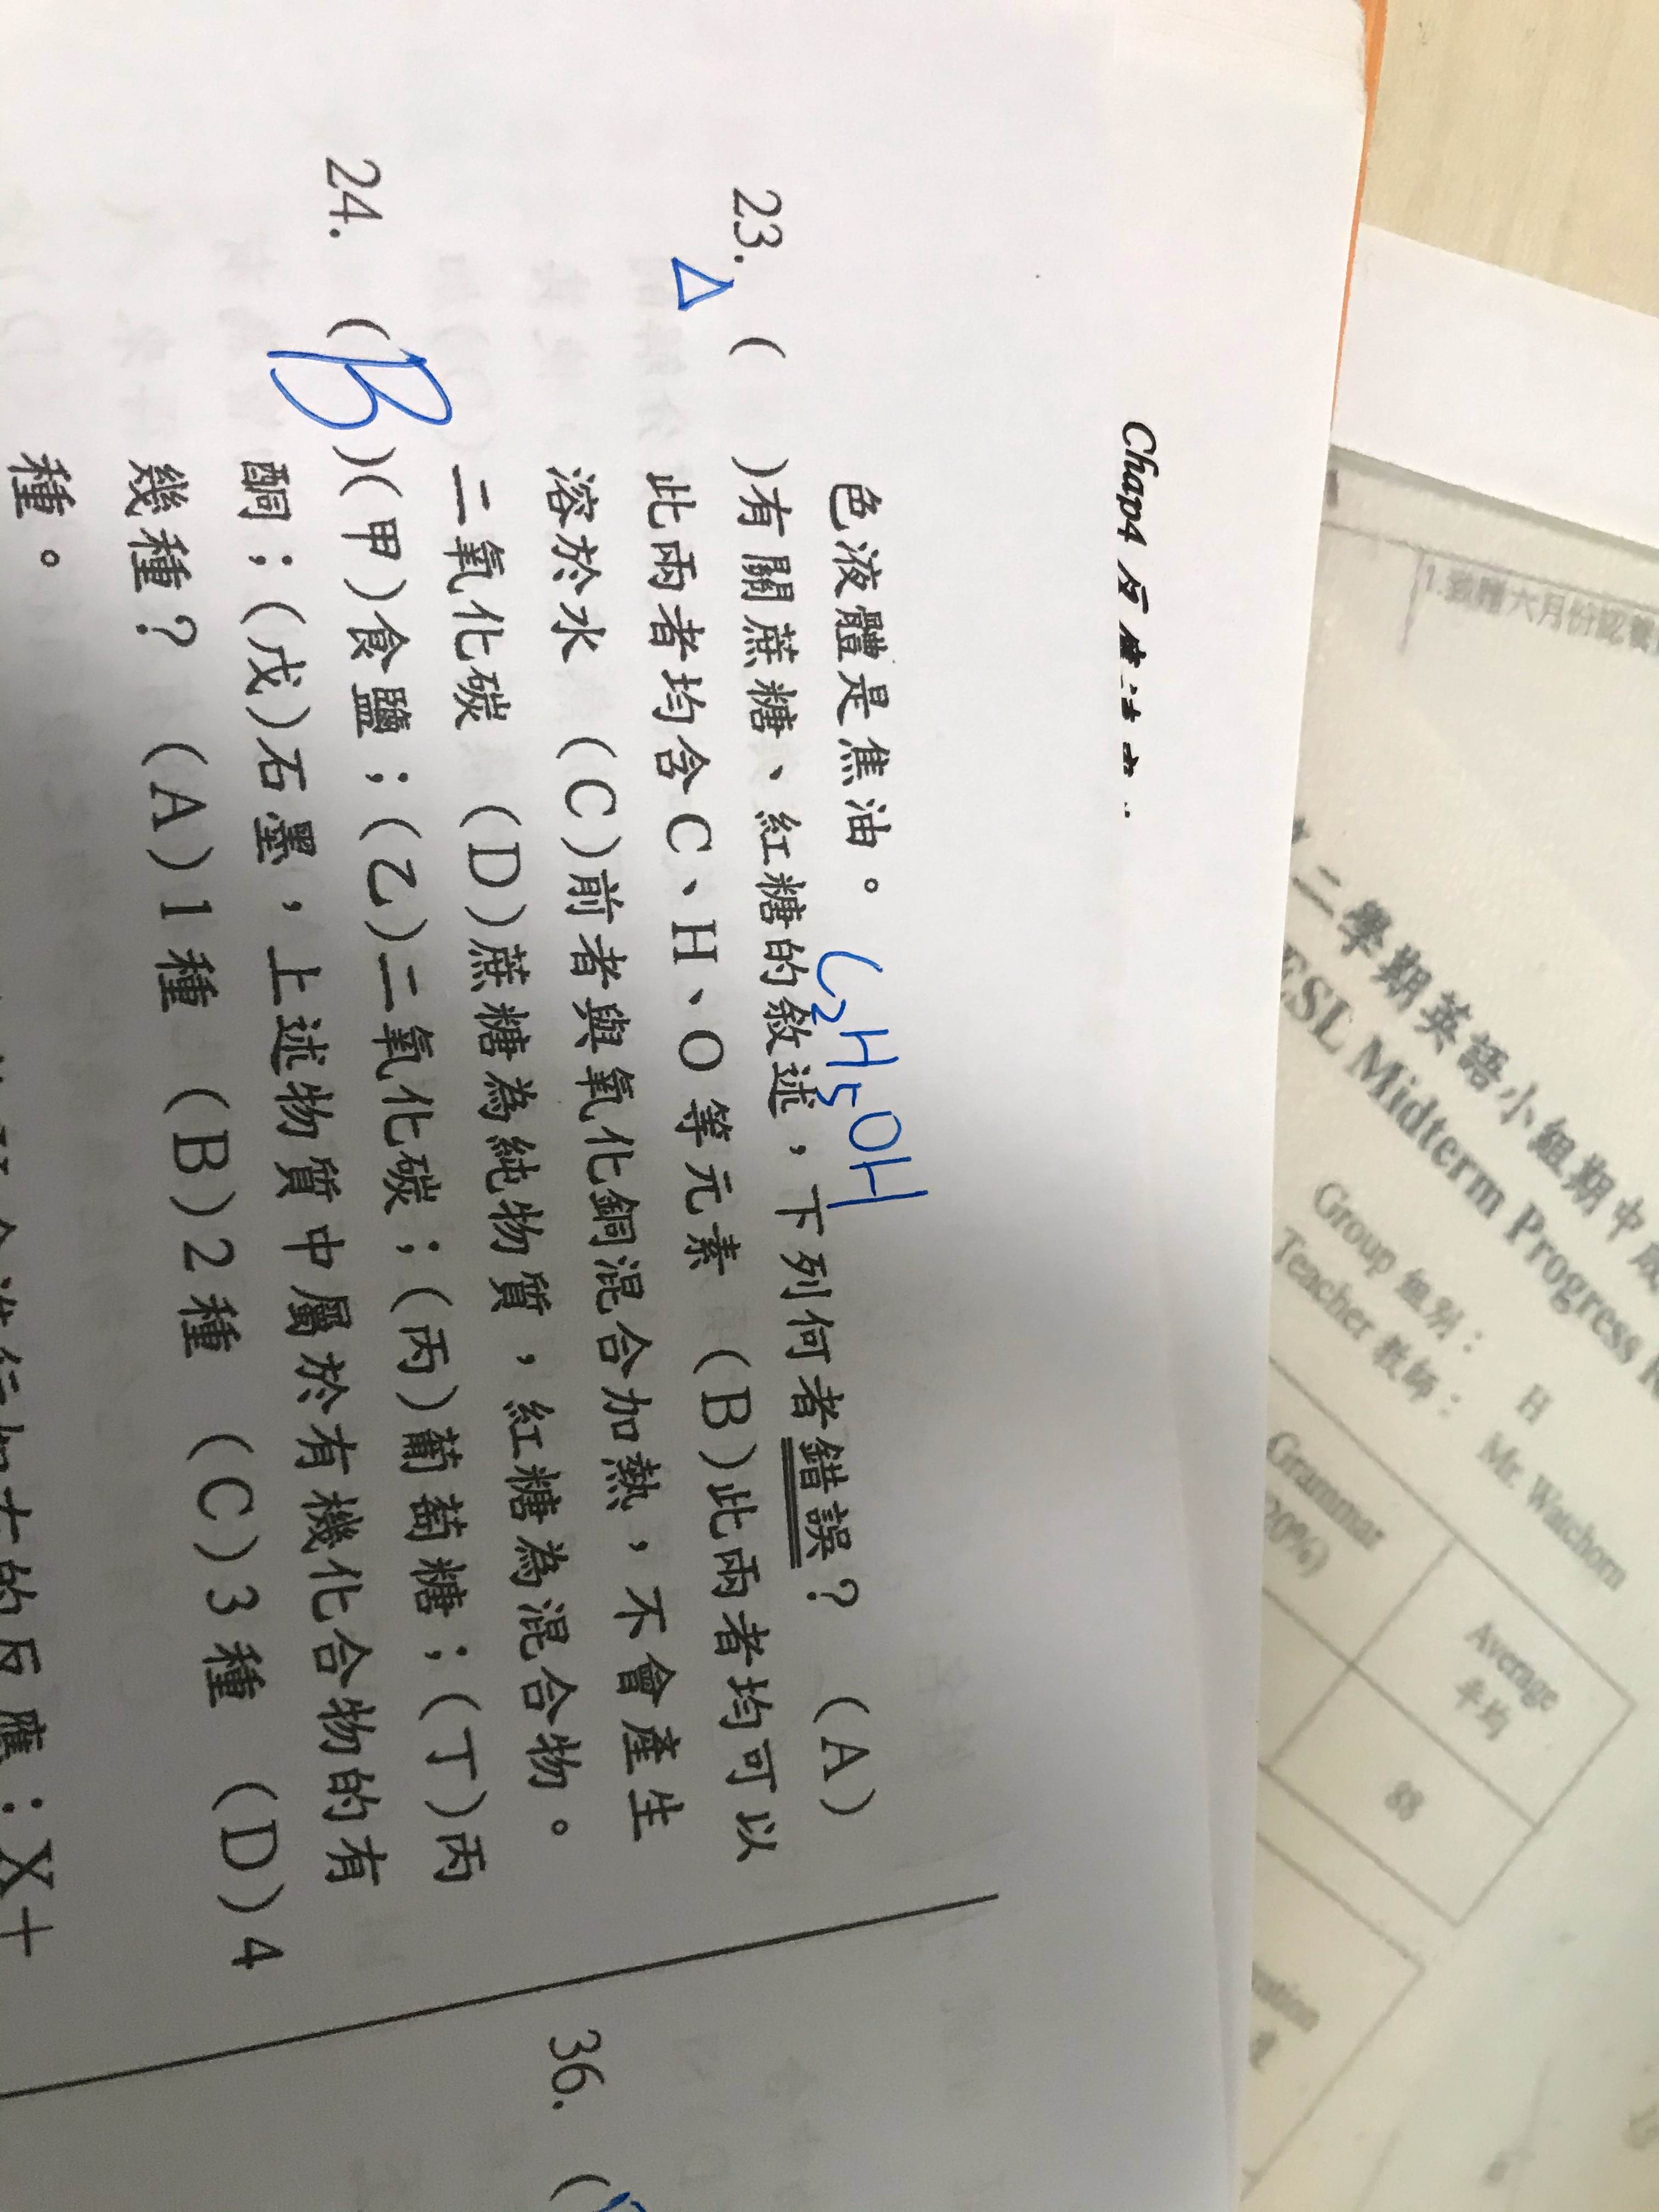 Chap4 反應
色液體是焦油。
C₂H₅OH
23. ( )有關蔗糖、紅糖的敘述，下列何者錯誤？ (A)
△
此兩者均含C、H、O等元素 (B)此兩者均可以
溶於水 (C)前者與氧化銅混合加熱，不會產生
二氧化碳 (D)蔗糖為純物質，紅糖為混合物。
24. (B)(甲)食鹽；(乙)二氧化碳；(丙)葡萄糖；(丁)丙
酮；(戊)石墨，上述物質中屬於有機化合物的有
幾種？ (A)1種 (B)2種 (C)3種 (D)4
種。
的反應：X+
36. (
1.
六月份認養
二學期英語小組期中成
ESL Midterm Progress R
Group 組別： H
Teacher 教師： Mr. Watchorn
Grammar
20%)
Average
平均
88